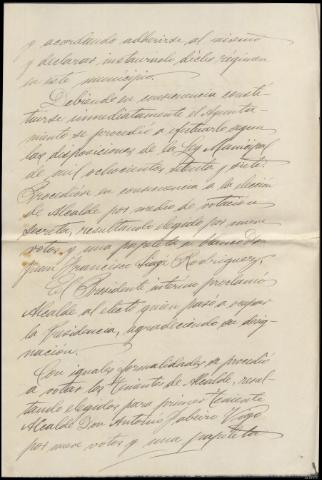 y acordando adherirse al mismo
y declarar instaurado dicho régimen
en este municipio.
Debiendo en consecuencia consti-
tuirse inmediatamente el Ayunta-
miento se procedió a efectuarlo segun
las disposiciones de la Ley Municipal
de mil ochocientos setenta y siete.
Procedióse en consecuencia a la elección
de Alcalde por medio de votación
secreta, resultando elegido por nueve
votos y una papeleta en blanco Don
Juan Francisco Rodriguez.
El Presidente interino proclamó
Alcalde al electo quien pasó a ocupar
la Presidencia, agradeciendo su desig-
nación.
Con iguales formalidades se procedió
a votar los Tenientes de Alcalde, resul-
tando elegidos para primer Teniente
Alcalde Don Antonio
por nueve votos y una papeleta